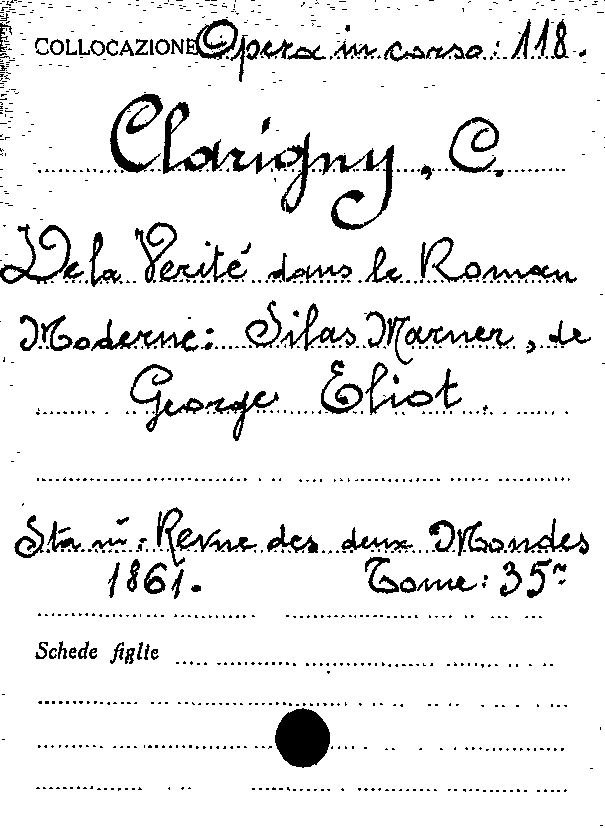 COLLOCAZIONE Opera in corso: 118.
Clarigny, C.
De la Verité dans le Roman
Moderne: Silas Marner, de
George Eliot.
Sta in: Revue des deux Mondes
1861. Tome: 35m
Schede figlie